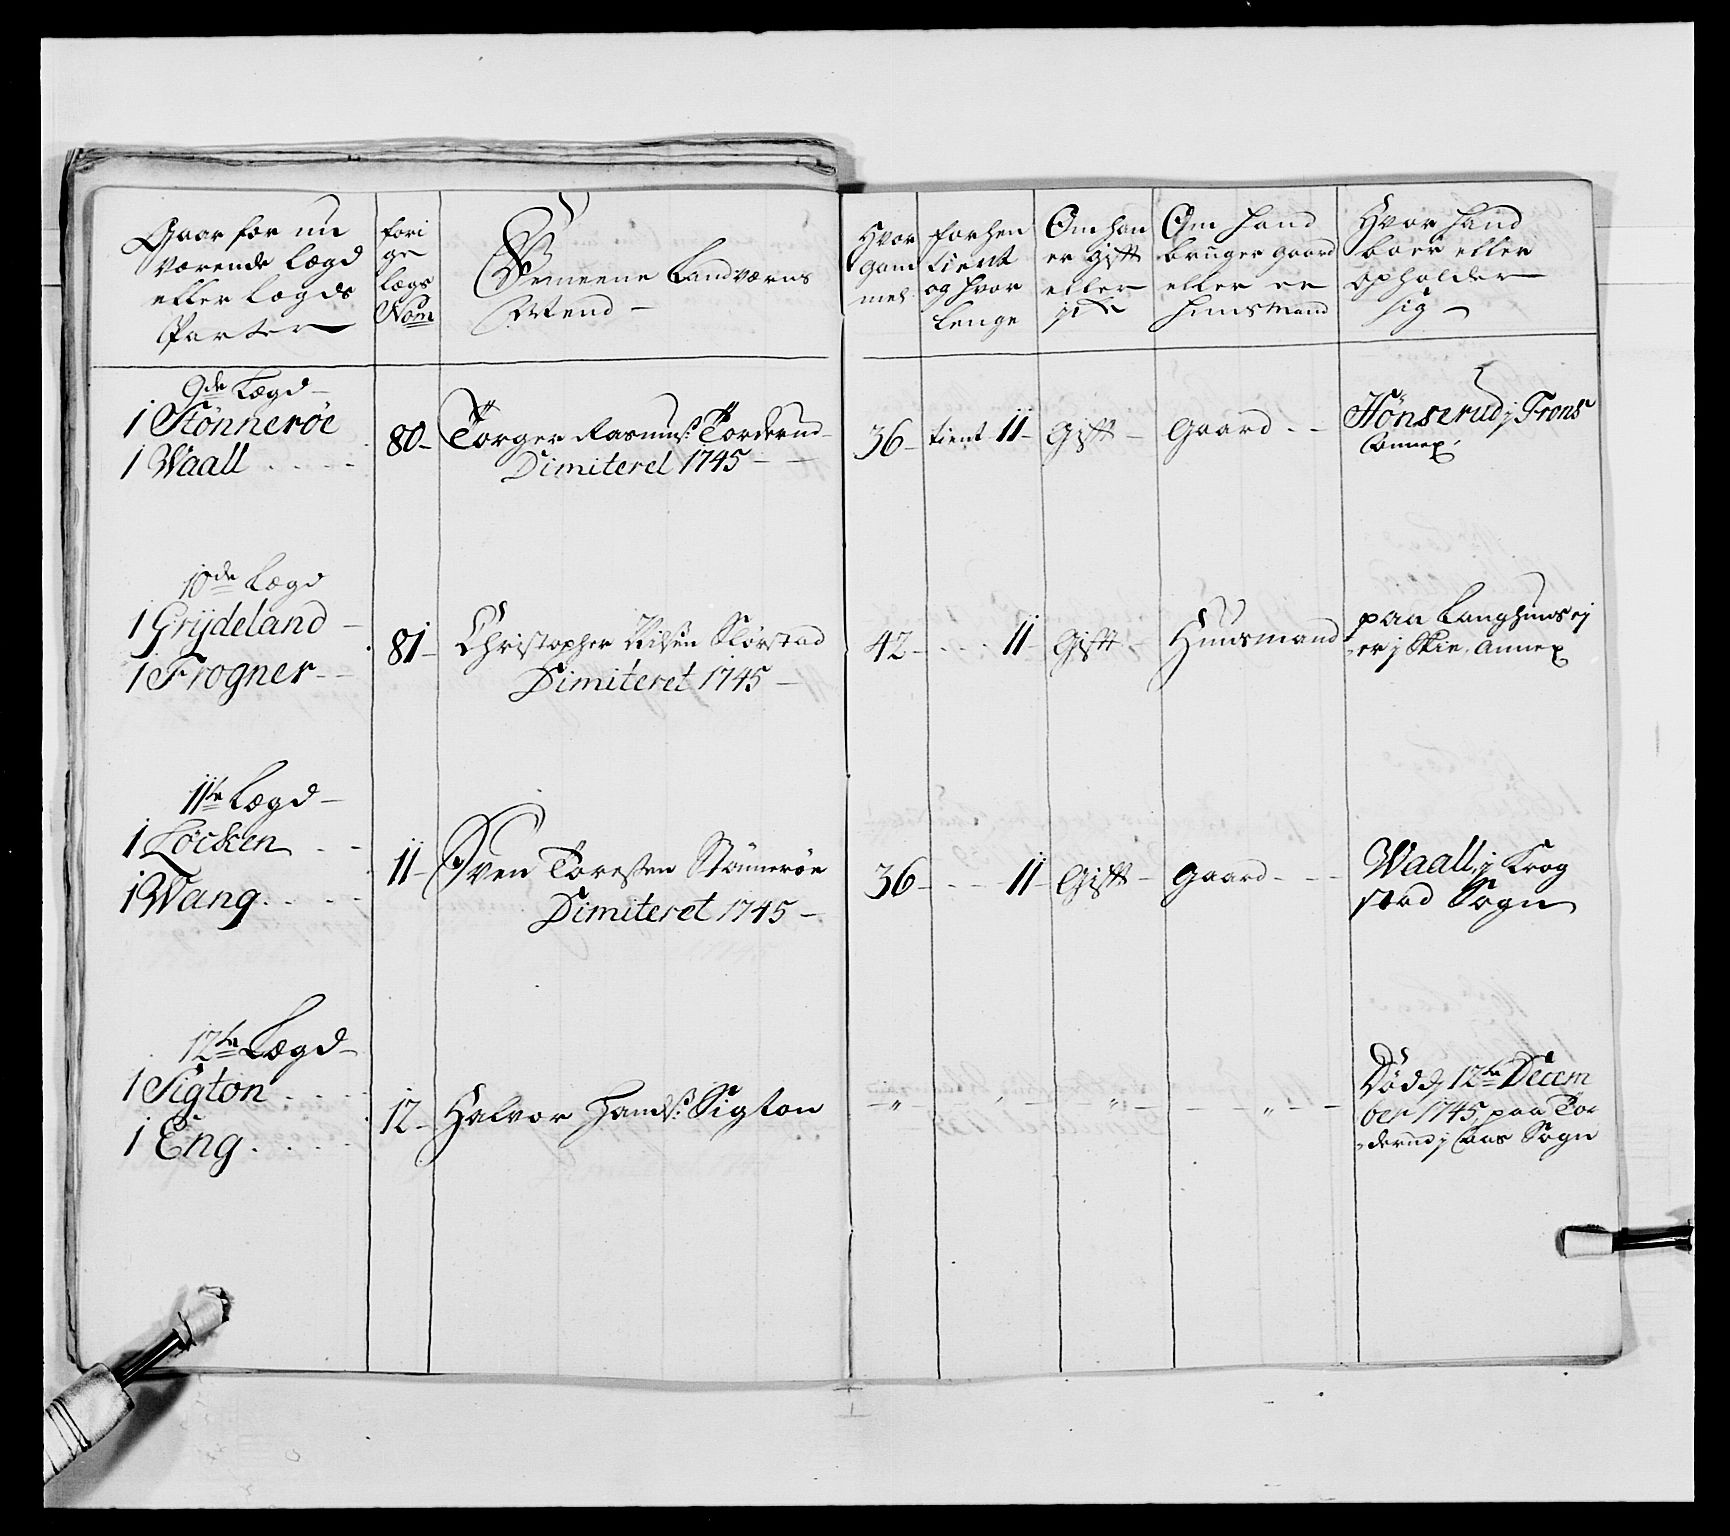 Gaar for nu
værende Lægd
eller Lægds
Parter
fori
ge
lægs
Nom
Gemeene Landværns
Mend
Hvor
gam
mel
forhen
tient
og hvor
lenge
Om han
er Gift
eller
Om hand
bruger gaard
eller er
Huusmand
Hvor hand
boer eller
opholder
sig
9de Lægd
1 Stönneröe
1 Waall
80
Torger Rasmus: Torderud
Dimiteret 1745
36
tient 11
Gift
Gaard
Hönserud j Frons
Annex
10de Lægd
1 Grijdeland
1 Frogner
81
Christopher Nilsen Slörstad
Dimiteret 1745
42
11
Gift
Huusmand
paa Langhuus ej
er j Skie Annex
11te Lægd
1 Löcken
1 Wang
11
Sven Toresten Stönneröe
Dimiteret 1745
36
11
Gift
Gaard
Waall, j Krog
stad Sogn
12te Lægd
1 Sigton
1 Eng
12
Halvor Hands: Sigton
Död d, 12te Decem
ber 1745, paa Tor
derud j Aas Sogn